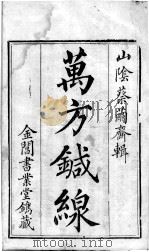 山陰蔡繭齋輯
萬方鍼線
金閶書業堂鐫藏